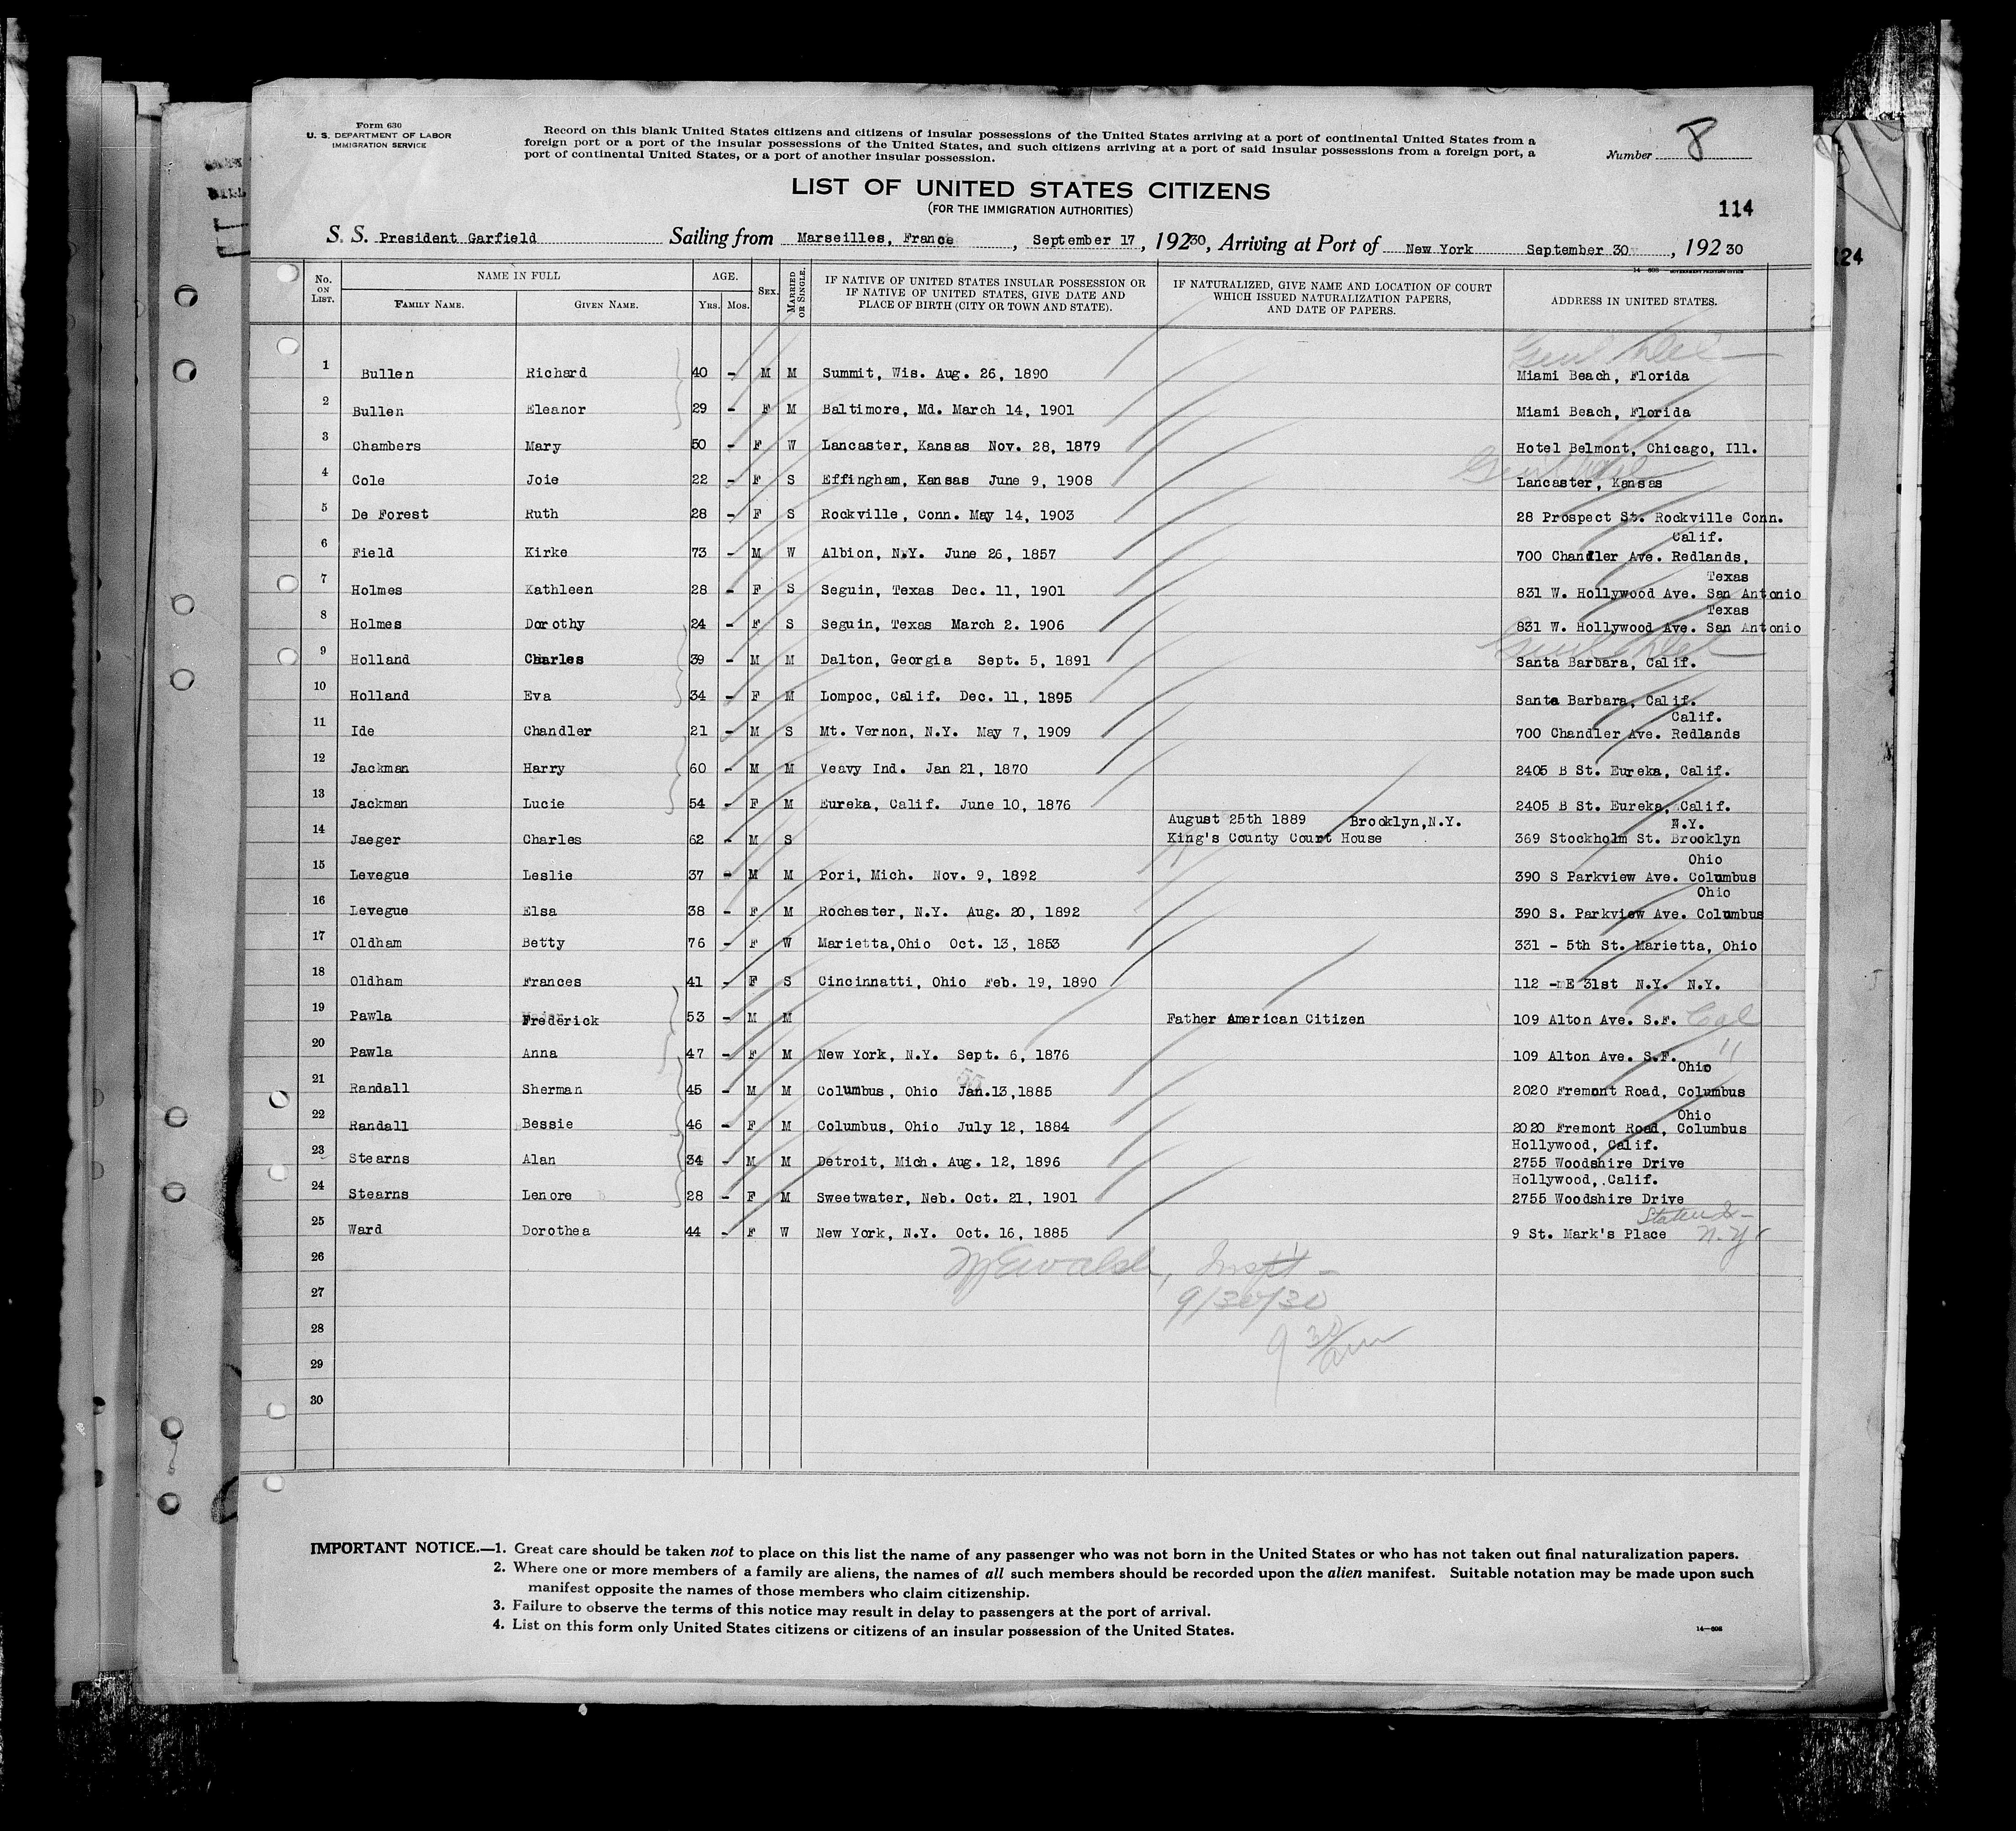 Form 630
U. S. DEPARTMENT OF LABOR
IMMIGRATION SERVICE
Record on this blank United States citizens and citizens of insular possessions of the United States arriving at a port of continental United States from a
foreign port or a port of the insular possessions of the United States, and such citizens arriving at a port of said insular possessions from a foreign port, a
port of continental United States, or a port of another insular possession.
Number 8
LIST OF UNITED STATES CITIZENS
(FOR THE IMMIGRATION AUTHORITIES)
114
S. S. President Garfield Sailing from Marseilles, France, September 17, 19230, Arriving at Port of New York September 30, 192 30
124
No. ON LIST. NAME IN FULL FAMILY NAME. GIVEN NAME. AGE. YRS. MOS. SEX. MARRIED OR SINGLE. IF NATIVE OF UNITED STATES INSULAR POSSESSION OR IF NATIVE OF UNITED STATES, GIVE DATE AND PLACE OF BIRTH (CITY OR TOWN AND STATE). IF NATURALIZED, GIVE NAME AND LOCATION OF COURT WHICH ISSUED NATURALIZATION PAPERS, AND DATE OF PAPERS. ADDRESS IN UNITED STATES.
1 Bullen Richard 40 - M M Summit, Wis. Aug. 26, 1890 Miami Beach, Florida
2 Bullen Eleanor 29 - F M Baltimore, Md. March 14, 1901 Miami Beach, Florida
3 Chambers Mary 50 - F W Lancaster, Kansas Nov. 28, 1879 Hotel Belmont, Chicago, Ill.
4 Cole Joie 22 - F S Effingham, Kansas June 9, 1908 Lancaster, Kansas
5 De Forest Ruth 28 - F S Rockville, Conn. May 14, 1903 28 Prospect St. Rockville Conn.
Calif.
6 Field Kirke 73 - M W Albion, N.Y. June 26, 1857 700 Chandler Ave. Redlands,
Texas
7 Holmes Kathleen 28 - F S Seguin, Texas Dec. 11, 1901 831 W. Hollywood Ave. San Antonio
Texas
8 Holmes Dorothy 24 - F S Seguin, Texas March 2. 1906 831 W. Hollywood Ave. San Antonio
9 Holland Charles 39 - M M Dalton, Georgia Sept. 5, 1891 Santa Barbara, Calif.
10 Holland Eva 34 - F M Lompoc, Calif. Dec. 11, 1895 Santa Barbara, Calif.
Calif.
11 Ide Chandler 21 - M S Mt. Vernon, N.Y. May 7, 1909 700 Chandler Ave. Redlands
12 Jackman Harry 60 - M M Veavy Ind. Jan 21, 1870 2405 B St. Eureka, Calif.
13 Jackman Lucie 54 - F M Eureka, Calif. June 10, 1876 2405 B St. Eureka, Calif.
August 25th 1889 Brooklyn,N.Y. N.Y.
14 Jaeger Charles 62 - M S King's County Court House 369 Stockholm St. Brooklyn
Ohio
15 Levegue Leslie 37 - M M Pori, Mich. Nov. 9, 1892 390 S Parkview Ave. Columbus
Ohio
16 Levegue Elsa 38 - F M Rochester, N.Y. Aug. 20, 1892 390 S. Parkview Ave. Columbus
17 Oldham Betty 76 - F W Marietta,Ohio Oct. 13, 1853 331 - 5th St. Marietta, Ohio
18 Oldham Frances 41 - F S Cincinnatti, Ohio Feb. 19, 1890 112 - E 31st N.Y. N.Y.
19 Pawla Frederick 53 - M M Father American Citizen 109 Alton Ave. S.F. Cal
20 Pawla Anna 47 - F M New York, N.Y. Sept. 6, 1876 109 Alton Ave. S.F. "
55 Ohio
21 Randall Sherman 45 - M M Columbus, Ohio Jan.13,1885 2020 Fremont Road, Columbus
Ohio
22 Randall Bessie 46 - F M Columbus, Ohio July 12, 1884 2020 Fremont Road, Columbus
Hollywood, Calif.
23 Stearns Alan 34 - M M Detroit, Mich. Aug. 12, 1896 2755 Woodshire Drive
Hollywood, Calif.
24 Stearns Lenore 28 - F M Sweetwater, Neb. Oct. 21, 1901 2755 Woodshire Drive
25 Ward Dorothea 44 - F W New York, N.Y. Oct. 16, 1885 9 St. Mark's Place N.Y
26 Insp't
27 9/30/30
28 9 30 am
29
30
IMPORTANT NOTICE.—1. Great care should be taken not to place on this list the name of any passenger who was not born in the United States or who has not taken out final naturalization papers.
2. Where one or more members of a family are aliens, the names of all such members should be recorded upon the alien manifest. Suitable notation may be made upon such
manifest opposite the names of those members who claim citizenship.
3. Failure to observe the terms of this notice may result in delay to passengers at the port of arrival.
4. List on this form only United States citizens or citizens of an insular possession of the United States.
14—608